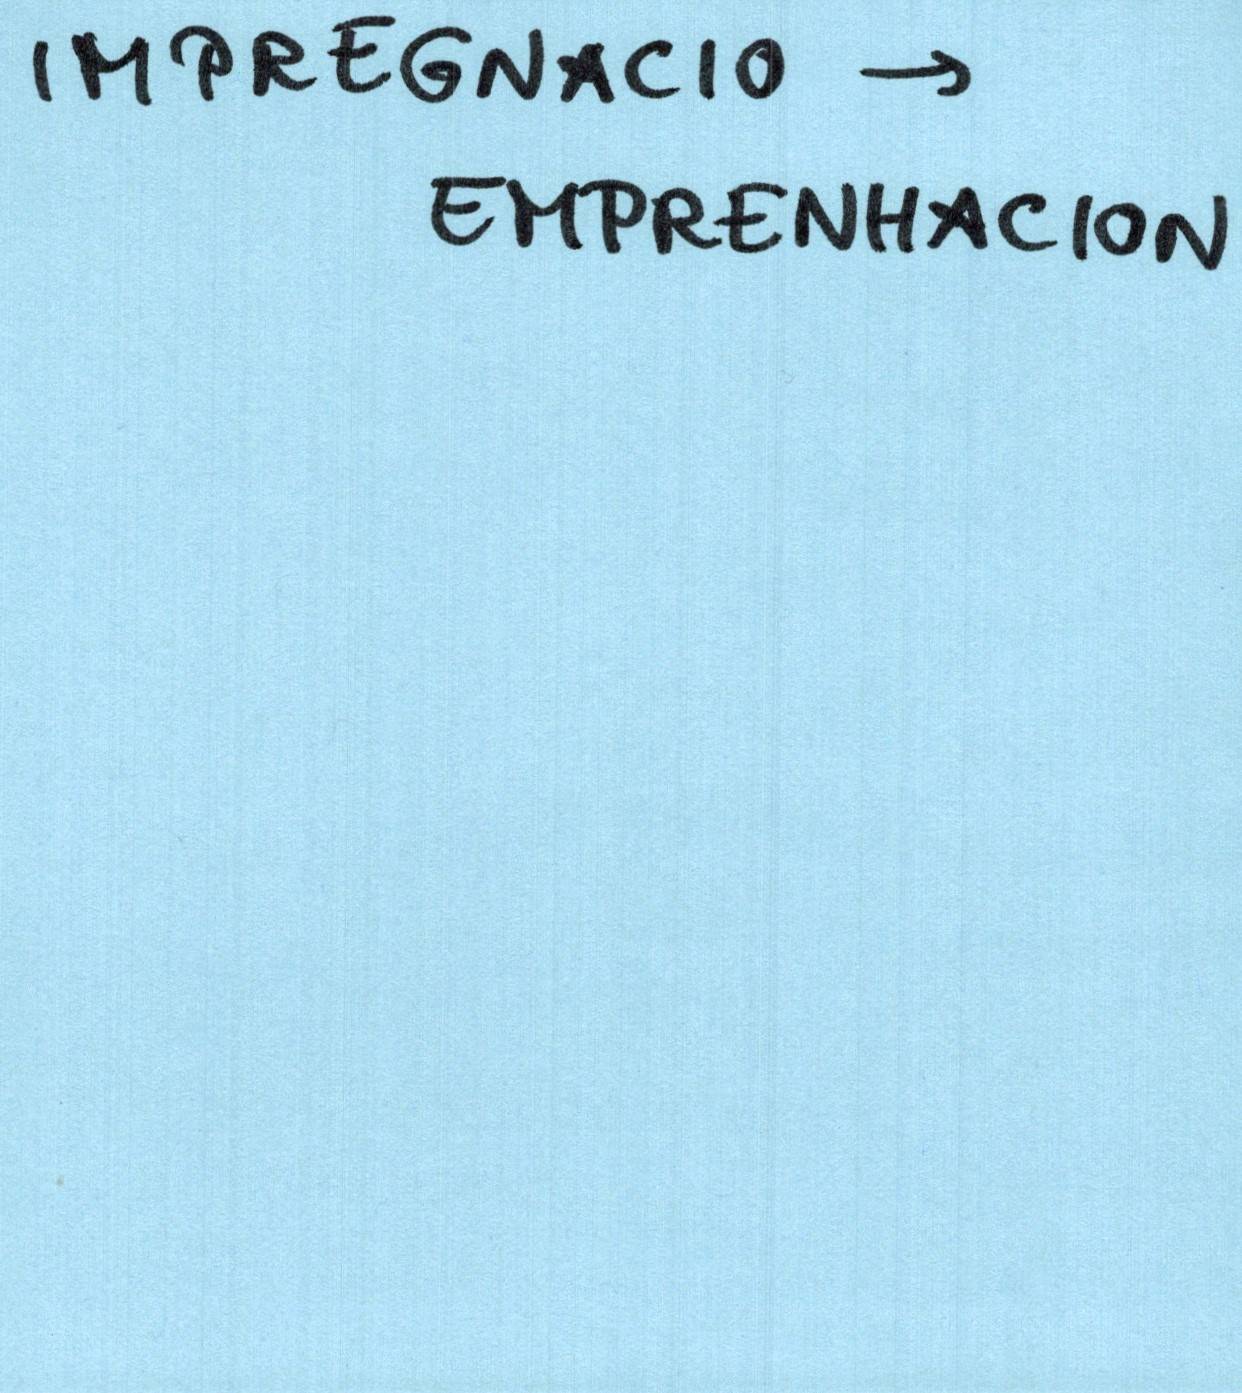 IMPREGNACIO →
EMPRENHACION